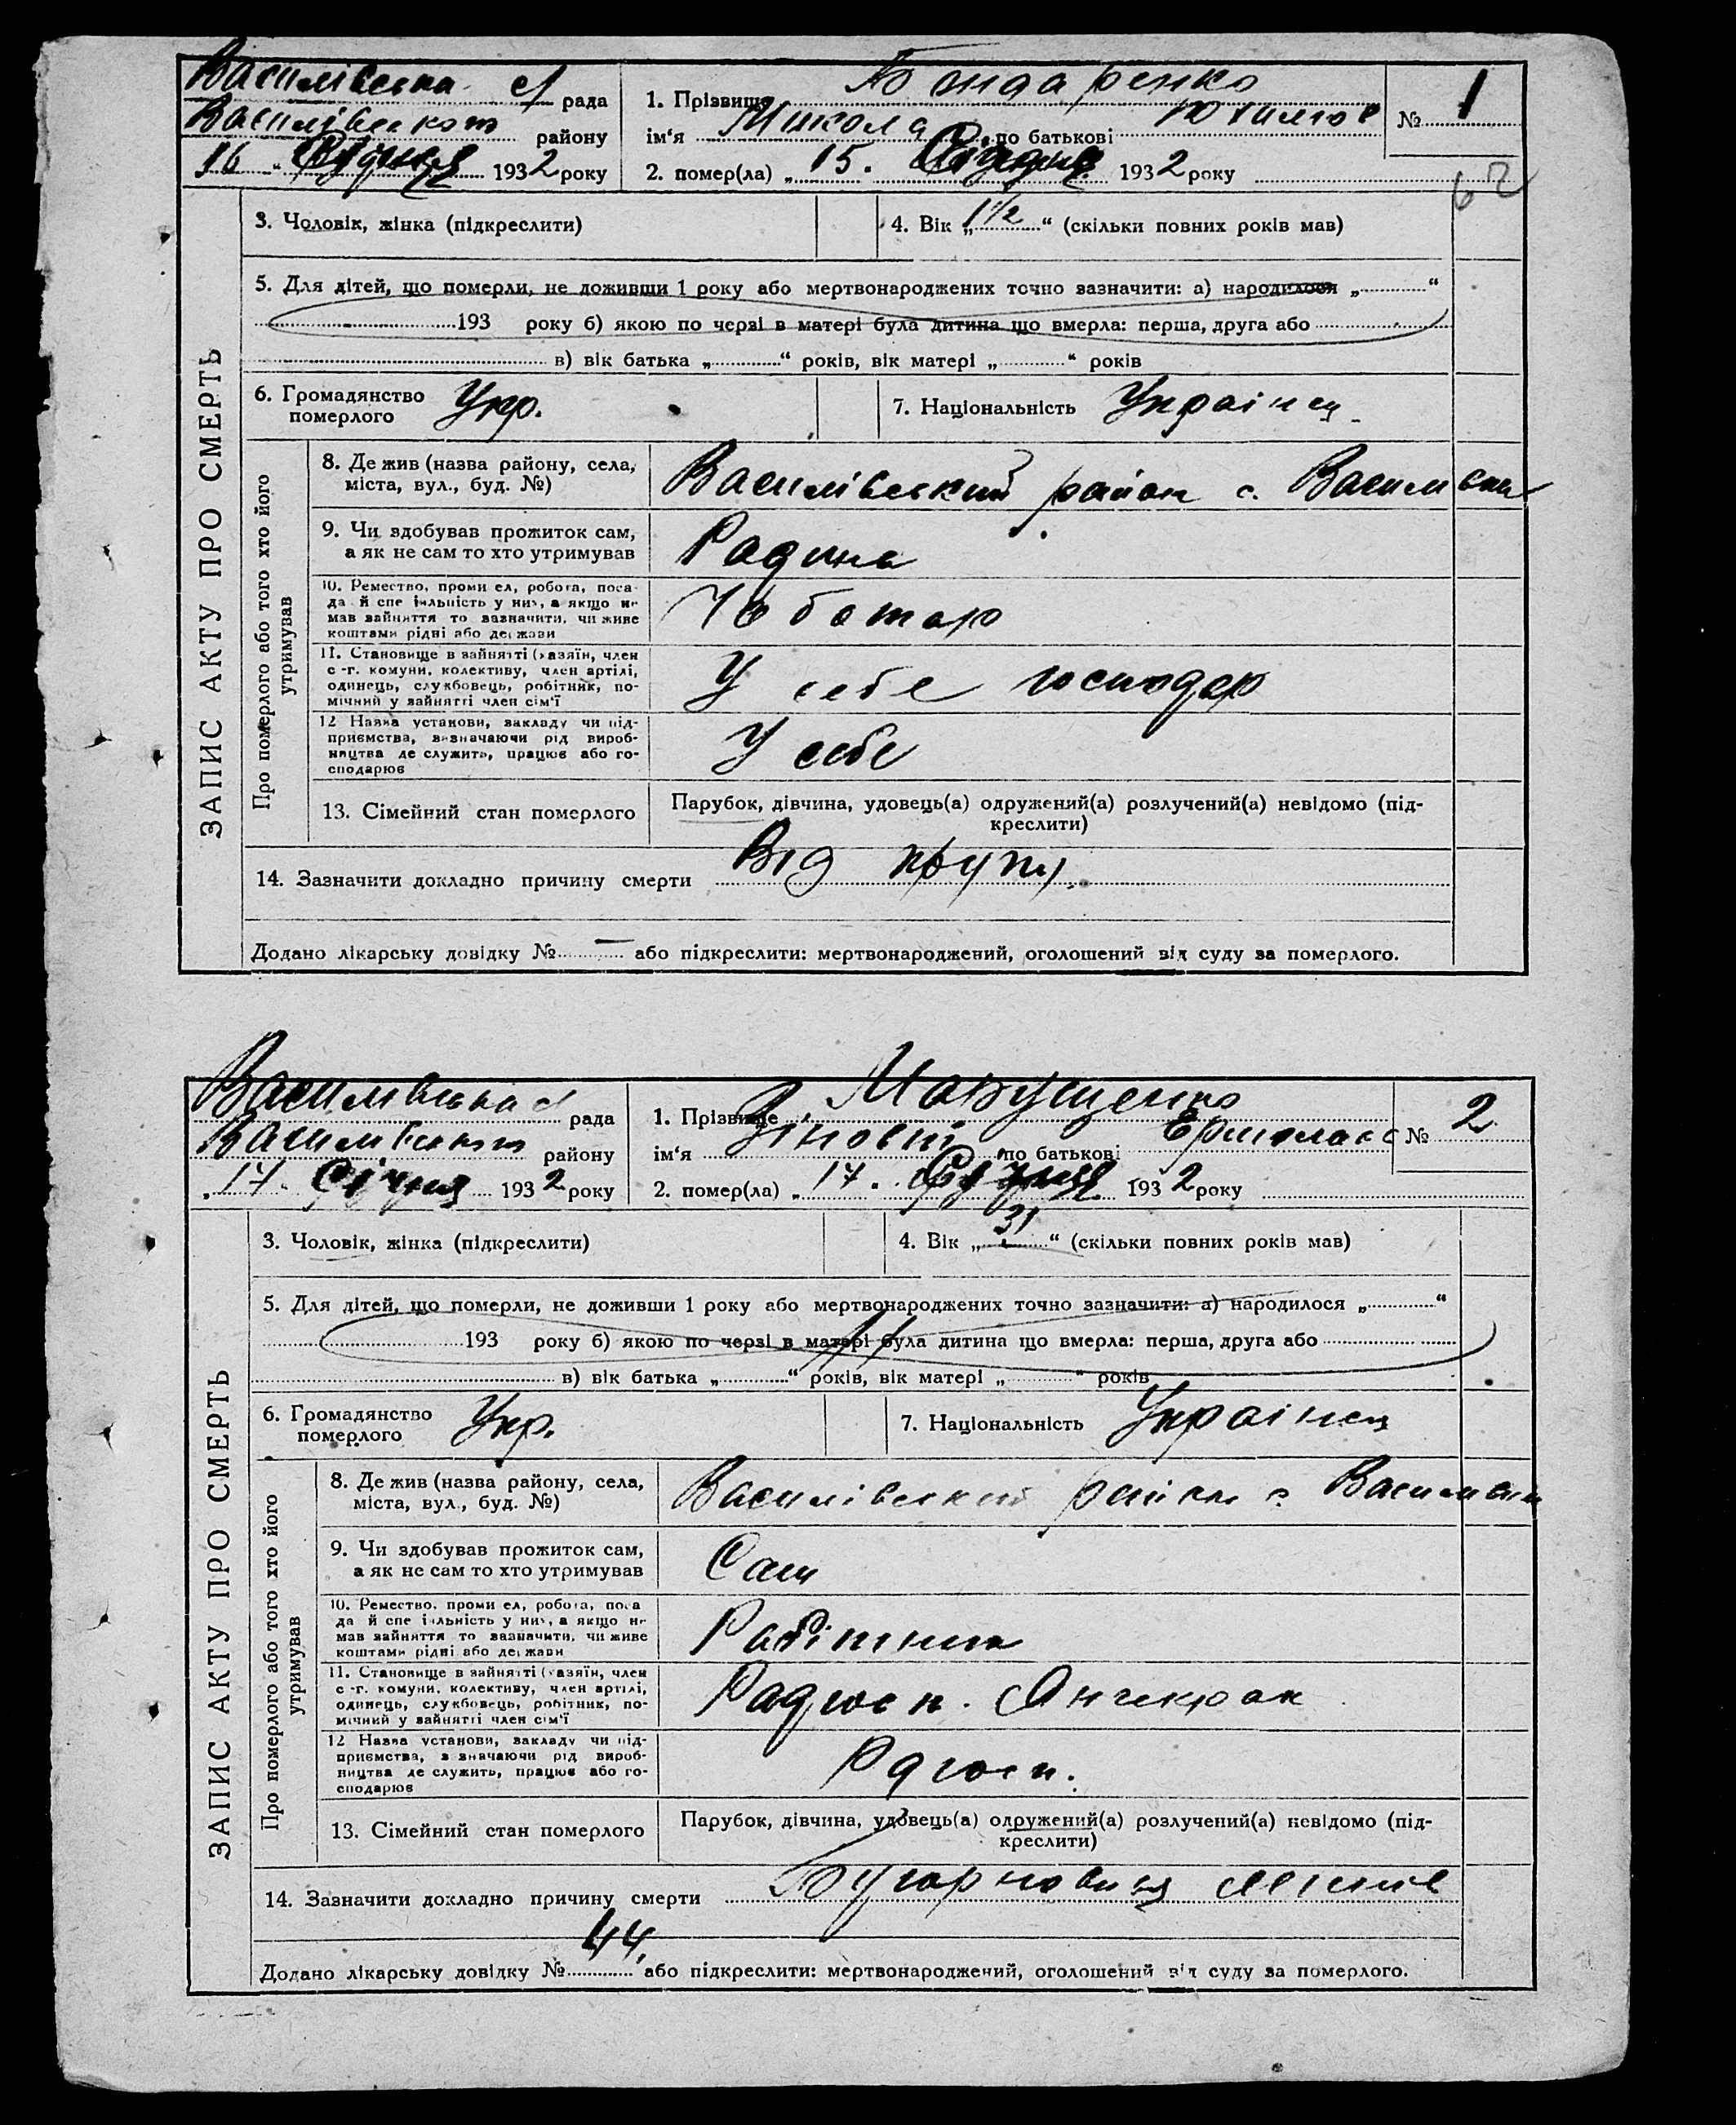 Василівська с/ рада
Василівского району
16 " Січня 1932 року
1. Прізвище Бондаренко
ім'я Микола по батькові
2. помер(ла) „ 15. Січня 1932 року
№ 1
62
ЗАПИС АКТУ ПРО СМЕРТЬ
3. Чоловік, жінка (підкреслити)
4. Вік „ 1½ “ (скільки повних років мав)
5. Для дітей, що померли, не доживши 1 року або мертвонароджених точно зазначити: а) народилося „ “
193 року б) якою по черзі в матері була дитина що вмерла: перша, друга або
в) вік батька „ “ років, вік матері „ “ років
6. Громадянство померлого Укр.
7. Національність Українец
Про померлого або того хто його утримував
8. Де жив (назва району, села,
міста, вул., буд. №)
Василівский район с. Василівка
9. Чи здобував прожиток сам,
а як не сам то хто утримував
Родина
10. Ремество, проми ел, робота, поса-
да й спе іяльність у них, а якщо не
мав зайняття то зазначити, чи живе
коштами рідні або держави
Чоботар
11. Становище в зайнятті (хазяїн, член
с-г. комуни, колективу, член артілі,
одинець, службовець, робітник, по-
мічний у зайнятті член сім'ї
У себе господар
12 Назва установи, закладу чи під-
приємства, визначаючи рід вироб-
ництва де служить, працює або го-
сподарює
У себе
13. Сімейний стан померлого
Парубок, дівчина, удовець(а) одружений(а) розлучений(а) невідомо (під-
креслити)
14. Зазначити докладно причину смерти Від крупу.
Додано лікарську довідку № — або підкреслити: мертвонароджений, оголошений від суду за померлого.
Василівська с/ рада
Василівского району
17. Січня 1932 року
1. Прізвище
ім'я Зіновій по батькові
2. помер(ла) „ 17. Січня 1932 року
№ 2
ЗАПИС АКТУ ПРО СМЕРТЬ
3. Чоловік, жінка (підкреслити)
4. Вік „ 31 “ (скільки повних років мав)
5. Для дітей, що померли, не доживши 1 року або мертвонароджених точно зазначити: а) народилося „ “
193 року б) якою по черзі в матері була дитина що вмерла: перша, друга або
в) вік батька „ “ років, вік матері „ “ років
6. Громадянство померлого Укр.
7. Національність Українец
Про померлого або того хто його утримував
8. Де жив (назва району, села,
міста, вул., буд. №)
Василівский район с. Василівка
9. Чи здобував прожиток сам,
а як не сам то хто утримував
Сам
10. Ремество, проми ел, робота, поса
да й спе іяльність у них, а якщо не
мав зайняття то зазначити, чи живе
коштами рідні або держави
Робітник
11. Становище в зайнятті (хазяїн, член
с-г. комуни, колективу, член артілі,
одинець, службовець, робітник, по-
мічний у зайнятті член сім'ї
Радгосп.
12 Назва установи, закладу чи під-
приємства, визначаючи рід вироб-
ництва де служить, працює або го-
сподарює
Рдгосп.
13. Сімейний стан померлого
Парубок, дівчина, удовець(а) одружений(а) розлучений(а) невідомо (під-
креслити)
14. Зазначити докладно причину смерти
Додано лікарську довідку № 44, або підкреслити: мертвонароджений, оголошений від суду за померлого.